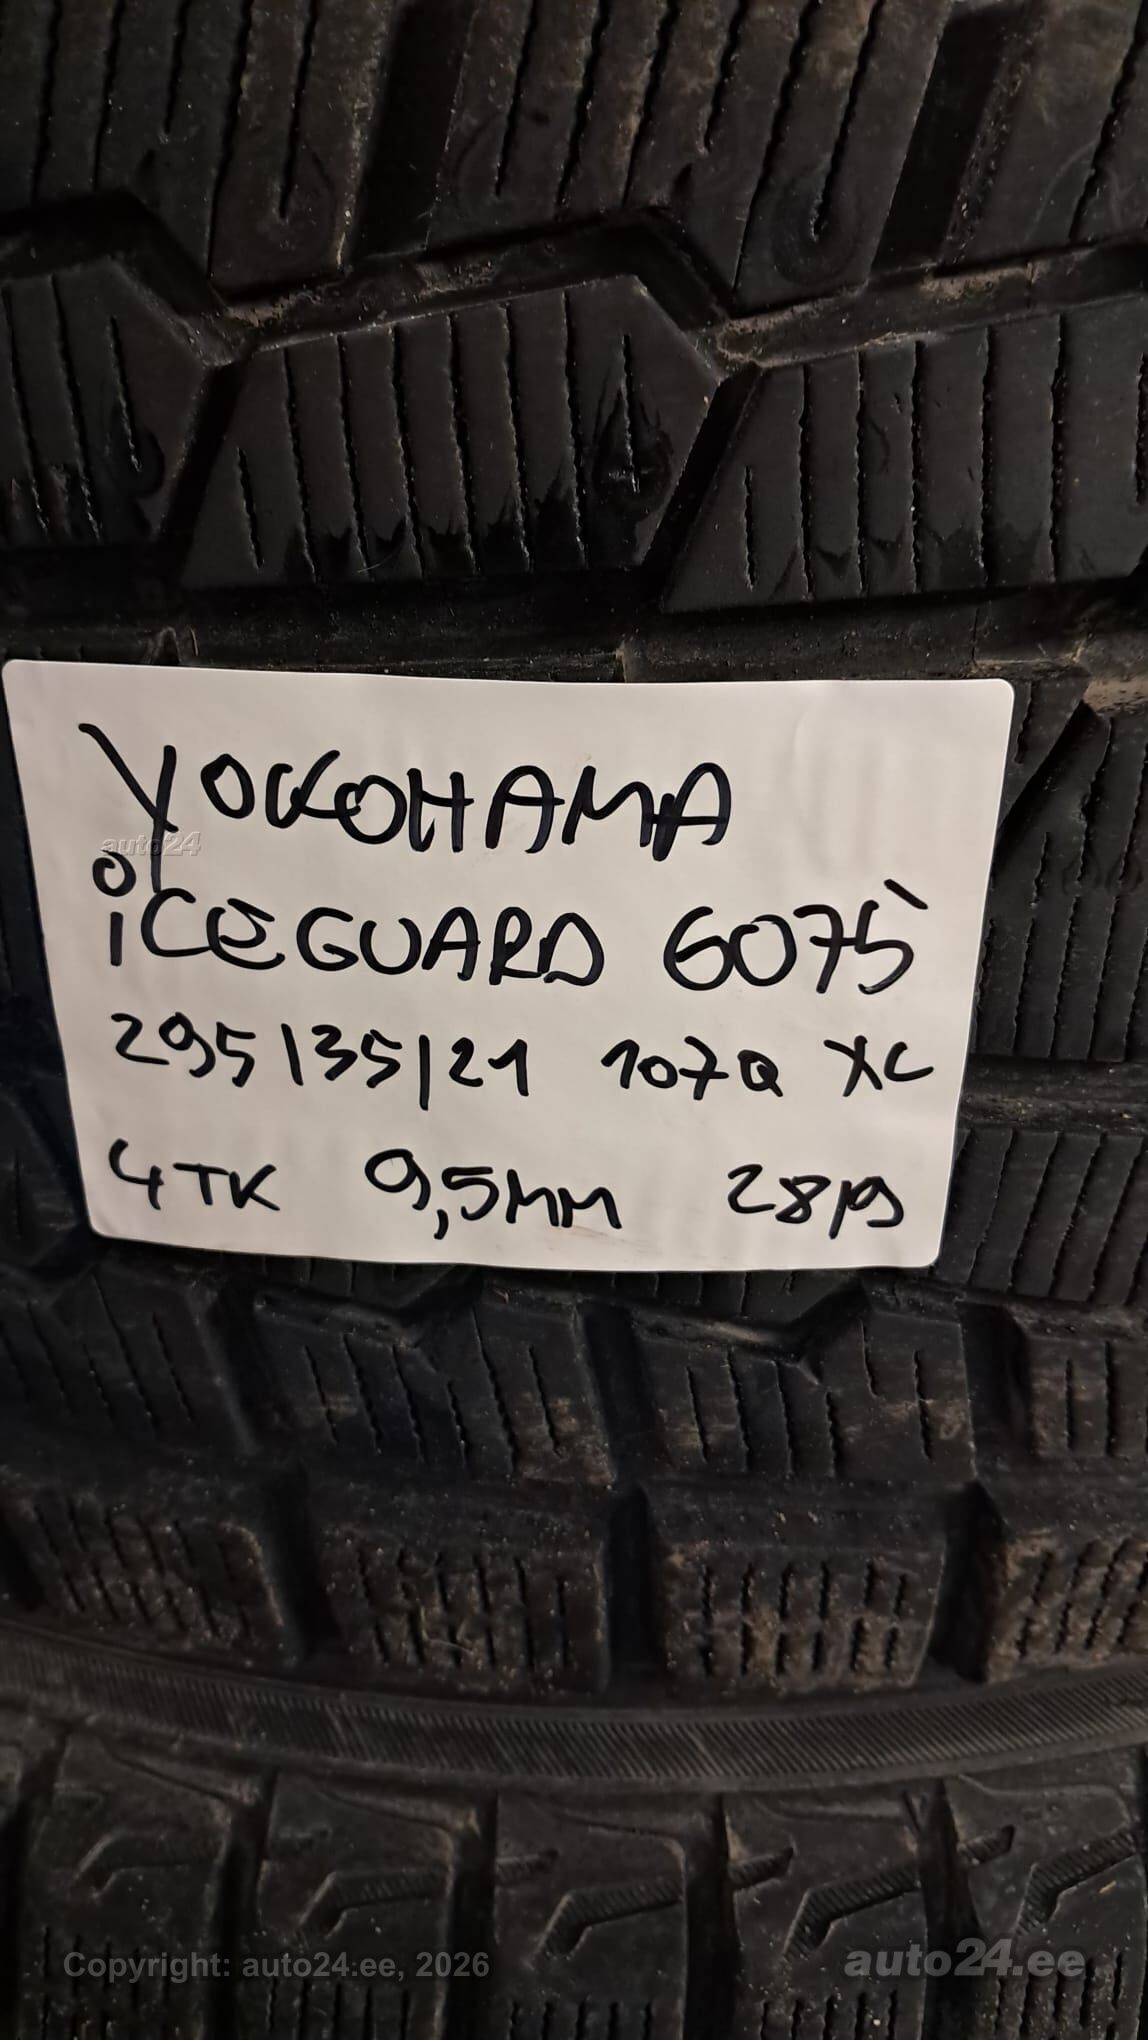 YOKOHAMA
auto24
iCEGUARD G075
295/35/21 107Q XL
4TK 9,5MM 28/19
Copyright: auto24.ee, 2026
auto24.ee